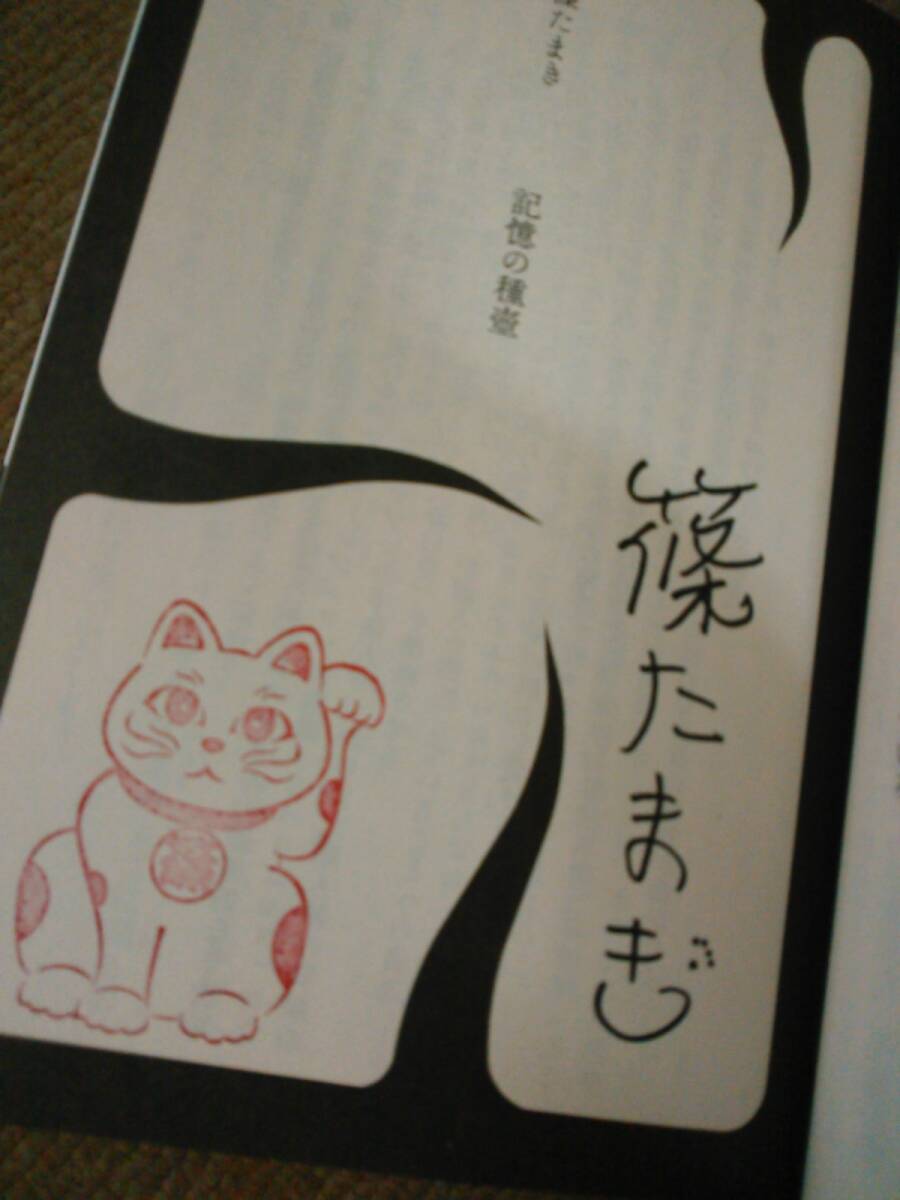 篠たまき
記憶の種壺
篠たまき